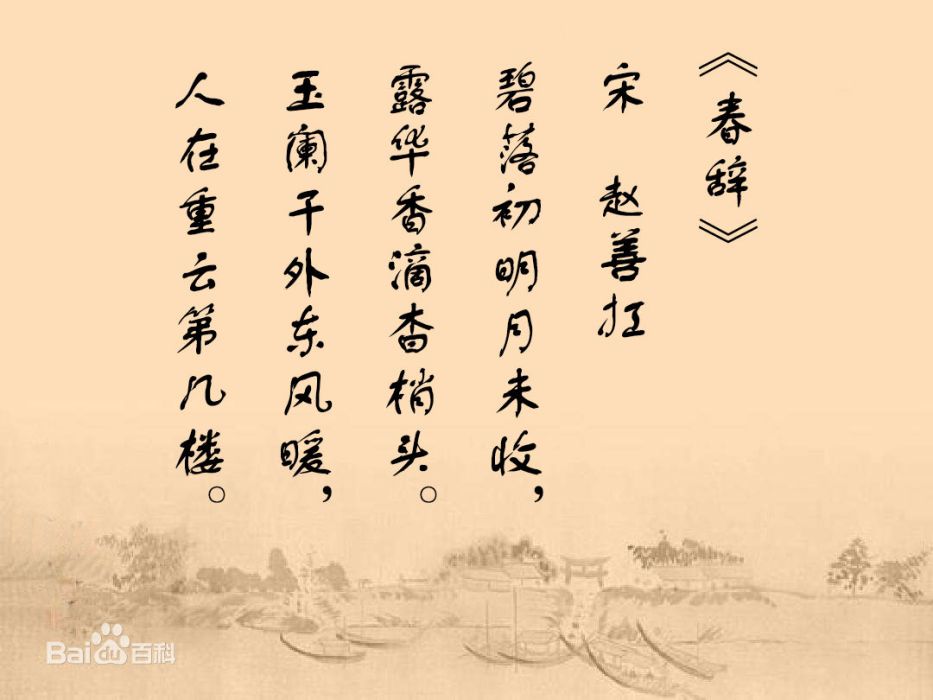 《春辞》
宋 赵善扛
碧落初明月未收，
露华香滴杏梢头。
玉阑干外东风暖，
人在重云第几楼。
Baidu百科